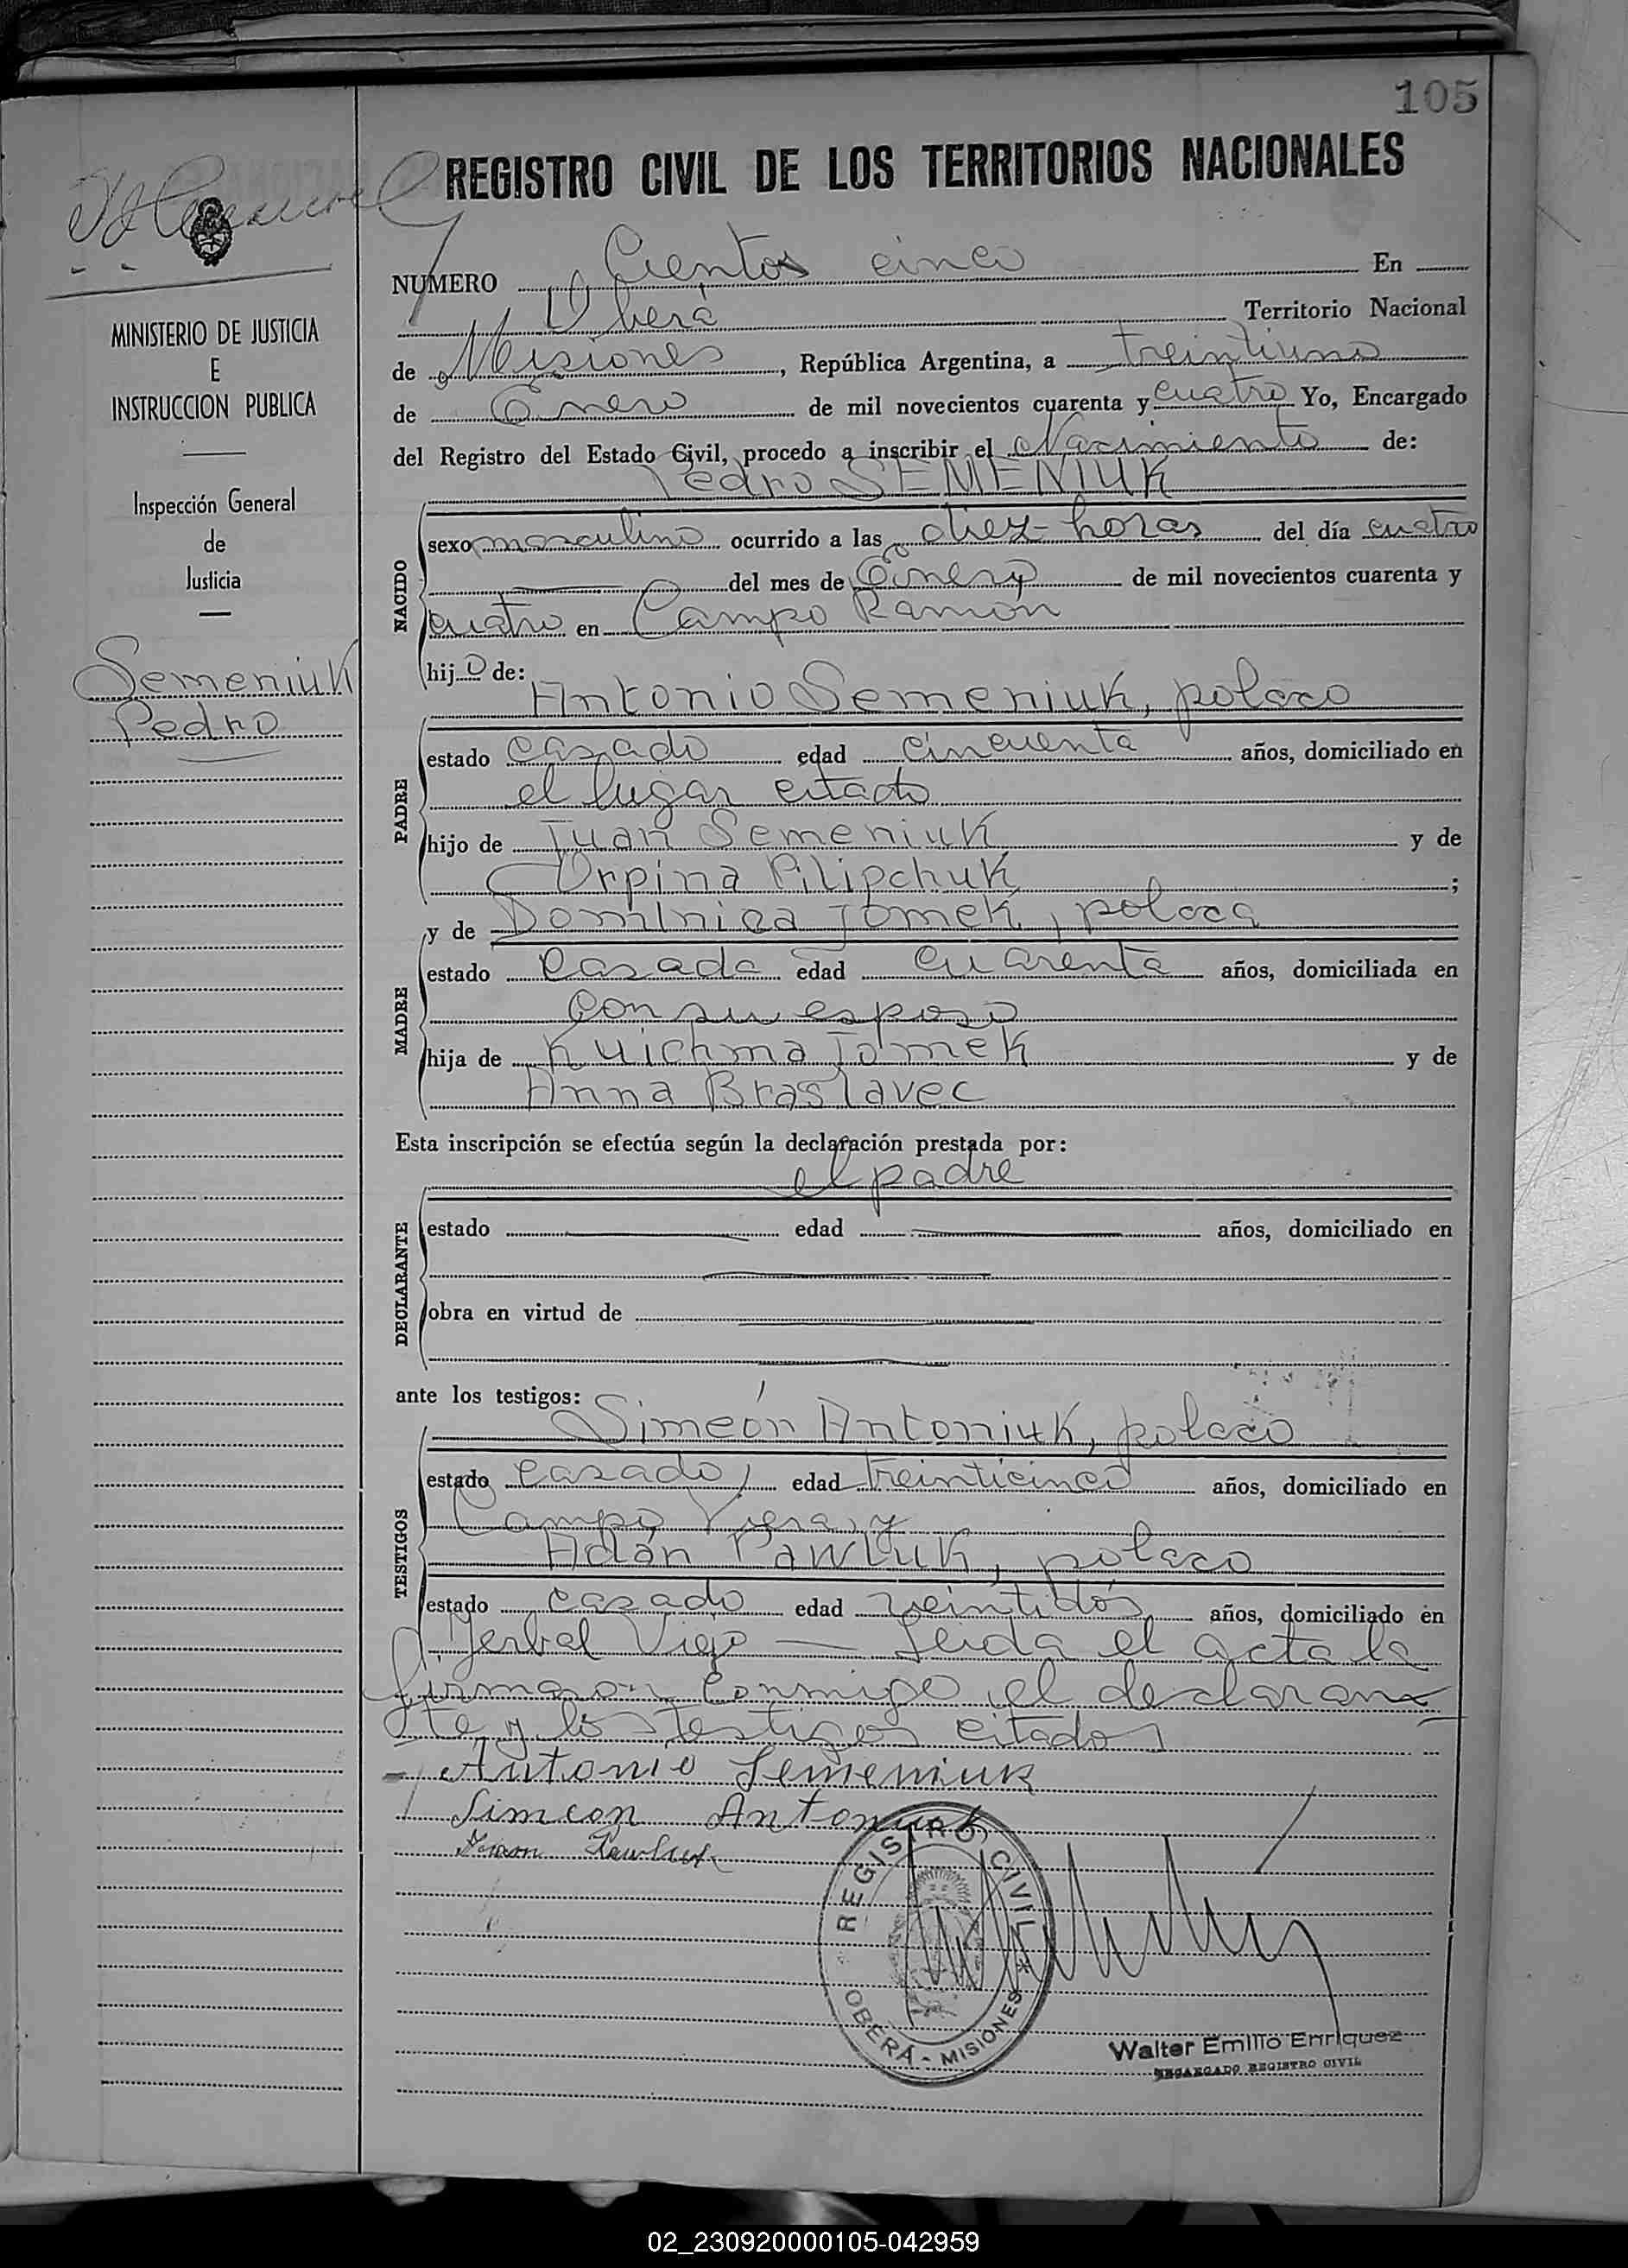 105
REGISTRO CIVIL DE LOS TERRITORIOS NACIONALES
MINISTERIO DE JUSTICIA
E
INSTRUCCION PUBLICA
Inspección General
de
Justicia
Semeniuk
Pedro
NUMERO Cientos cinco En
Oberá Territorio Nacional
de Misiones, República Argentina, a treintiuno
de Enero de mil novecientos cuarenta y cuatro Yo, Encargado
del Registro del Estado Civil, procedo a inscribir el Nacimiento de:
Pedro SEMENIUK
NACIDO
sexo masculino ocurrido a las diez horas del día cuatro
del mes de Enero de mil novecientos cuarenta y
cuatro en Campo Ramón
hijo de:
Antonio Semeniuk, polaco
PADRE
estado casado edad cincuenta años, domiciliado en
el lugar citado
hijo de Juan Semeniuk y de
Orpina Pilipchuk ;
y de Dominica Tomek, polaca
MADRE
estado casada edad cuarenta años, domiciliada en
con su esposo
hija de Kuichma Tomek y de
Anna Braslavec
Esta inscripción se efectúa según la declaración prestada por:
el padre
DECLARANTE
estado edad años, domiciliado en
obra en virtud de
ante los testigos:
Simeón Antoniuk, polaco
TESTIGOS
estado casado, edad treinticinco años, domiciliado en
Campo Viera, y
Adán Pawluk, polaco
estado casado edad veintidós años, domiciliado en
Yerbal Viejo — Leida el acta la
firmaron conmigo el declaran-
te y los testigos citados
Antonio Semeniuk
Simeon Antoniuk
Pawluk
REGISTRO CIVIL * OBERÁ - MISIONES *
Walter Emilio Enriquez
ENCARGADO REGISTRO CIVIL
02_230920000105-042959